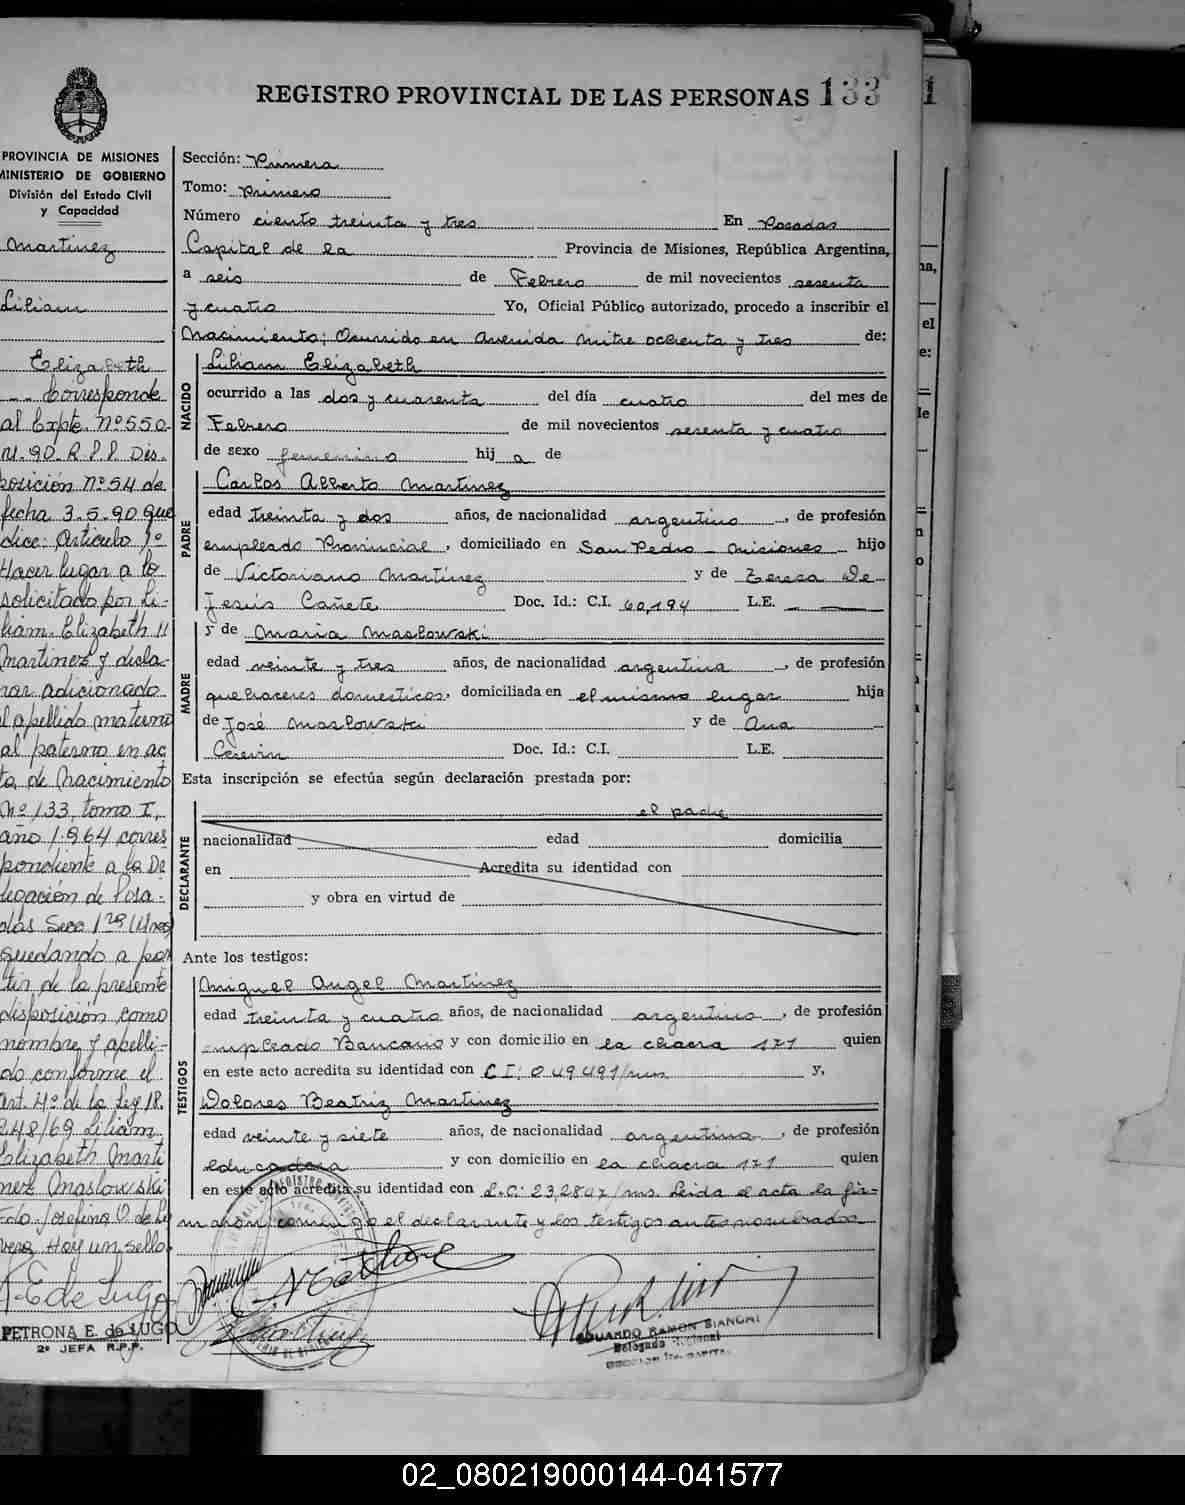 REGISTRO PROVINCIAL DE LAS PERSONAS 133
PROVINCIA DE MISIONES
MINISTERIO DE GOBIERNO
División del Estado Civil
y Capacidad
Martinez
Liliam
Elizabeth
Corresponde
al Expte. Nº 550
90 R.P.P. Dis-
posición Nº 54 de
fecha 3.5.90 que
dice: Artículo 1º
Hacer lugar a lo
solicitado por Li-
liam Elizabeth
Martinez y decla-
rar adicionado
el apellido materno
al paterno en ac
ta de Nacimiento
Nº 133, tomo I,
año 1.964 corres
pondiente a la De
legación de Posa-
das Secc 1ra
quedando a par
tir de la presente
disposición, como
nombre y apelli-
do conforme el
art. 4º de la Ley 18.
248/69 Liliam
Elizabeth Marti
nez Maslowski
Fdo. Josefina O. de
vera Hay un sello.
E de Lugo
PETRONA E. de LUGO
2º JEFA R.P.P.
Sección: Primera
Tomo: Primero
Número ciento treinta y tres En Posadas
Capital de la Provincia de Misiones, República Argentina,
a seis de Febrero de mil novecientos sesenta
y cuatro Yo, Oficial Público autorizado, procedo a inscribir el
Nacimiento; Ocurrido en Avenida Mitre ochenta y tres de:
NACIDO
Liliam Elizabeth
ocurrido a las dos y cuarenta del día cuatro del mes de
Febrero de mil novecientos sesenta y cuatro
de sexo femenino hij a de
PADRE
Carlos Alberto Martinez
edad treinta y dos años, de nacionalidad argentino, de profesión
empleado Provincial, domiciliado en San Pedro - Misiones hijo
de Victoriano Martínez y de Teresa De
Jesús Cañete Doc. Id.: C.I. 60,194 L.E. —
MADRE
y de Maria Maslowski
edad veinte y tres años, de nacionalidad argentina, de profesión
quehaceres domesticos, domiciliada en el mismo lugar hija
de José Maslowski y de Ana
Doc. Id.: C.I. L.E.
Esta inscripción se efectúa según declaración prestada por:
DECLARANTE
el padre
nacionalidad edad domicilia
en Acredita su identidad con
y obra en virtud de
Ante los testigos:
TESTIGOS
Miguel Angel Martínez
edad treinta y cuatro años, de nacionalidad argentino, de profesión
empleado Bancario y con domicilio en la chacra 171 quien
en este acto acredita su identidad con C I: 049491/mns y,
Dolores Beatriz Martinez
edad veinte y siete años, de nacionalidad argentina, de profesión
educadora y con domicilio en la chacra 171 quien
en este acto acredita su identidad con L.C: 23,2807/ms. Leida el acta la fir-
maron conmigo el declarante y los testigos antes nombrados
EDUARDO RAMON BIANCHI
Delegado
02_080219000144-041577